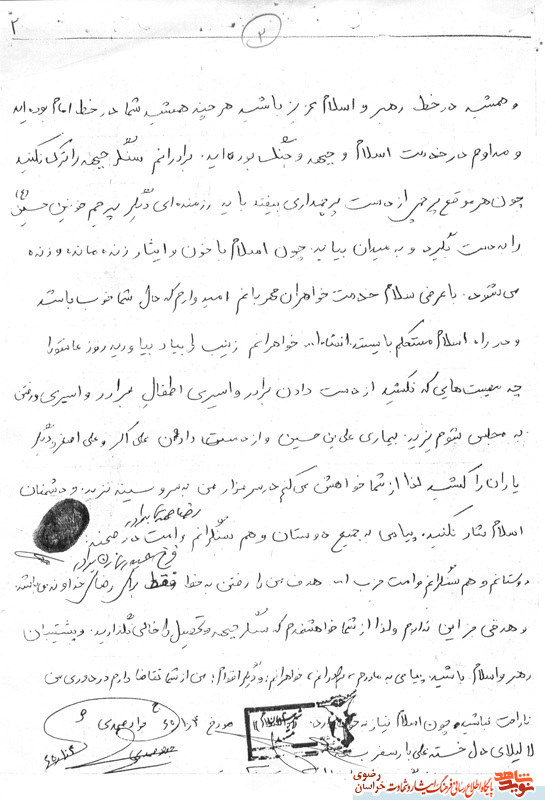 ۲
۲
و همیشه در خط رهبر و اسلام عزیز باشید هر چند همیشه شما در خط امام بوده اید
و مداوم در خدمت اسلام و جبهه و جنگ بوده اید. برادرانم سنگر جبهه را ترک نکنید
چون هر موقع پرچمی از دست پرچمداری بیفتد باید رزمنده ای دیگر پرچم خونین حسین (ع)
را به دست بگیرد و به میدان بیاید. چون اسلام با خون و ایثار زنده مانده و زنده
می شود. با عرض سلام خدمت خواهران مهربانم امیدوارم که حال شما خوب باشد
و در راه اسلام مستحکم بایستید انشاءا... خواهرانم زینب را بیاد بیاورید روز عاشورا
چه مصیبت هایی که نکشید از دست دادن برادر و اسیری اطفال برادر و اسیری و رفتن
به مجلس شوم یزید. بیماری علی بن حسین و از دست دادن علی اکبر و علی اصغر و دیگر
یاران را کشید لذا از شما خواهش می کنم در سر مزار من به سر و سینه نزنید و دشمنان
اسلام شاد نکنید. پیامی به جمیع دوستان و هم سنگرانم و امت در صحنه:
دوستانم و هم سنگرانم و امت حزب ا... هدف من از رفتن به خط فقط برای رضای خداوند می باشد.
و هدفی جز این ندارم ولذا از شما خواهشمندم که سنگر جبهه و تحصیل را خالی نگذارید. و پشتیبان
رهبر و اسلام باشید. پیامی به مادرم، برادرانم، خواهرانم، و دیگر اقوام: من از شما تقاضا دارم در دوری من
ناراحت نباشید چون اسلام نیاز به خون دارد.
لالیلای دل خسته علی بار سفر
مورخ
جواد مهدی
پایگاه اطلاع رسانی فرهنگ ایثار و شهادت خراسان رضوی
نوید شاهد